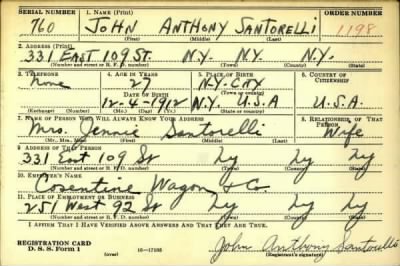 SERIAL NUMBER 1. NAME (Print) ORDER NUMBER
760 JOHN ANTHONY SANTORELLI 1198
(First) (Middle) (Last)
2. ADDRESS (Print)
331 EAST 109 ST. N.Y. N.Y. N.Y.
(Number and street or R. F. D. number) (Town) (County) (State)
3. TELEPHONE 4. AGE IN YEARS 5. PLACE OF BIRTH 6. COUNTRY OF CITIZENSHIP
None 27 N.Y. CITY
DATE OF BIRTH (Town or county)
12-4-1912 N.Y. U.S.A U.S.A.
(Exchange) (Number) (Mo.) (Day) (Yr.) (State or country)
7. NAME OF PERSON WHO WILL ALWAYS KNOW YOUR ADDRESS 8. RELATIONSHIP OF THAT PERSON
Mrs. Jennie Santorelli Wife
(Mr., Mrs., Miss) (First) (Middle) (Last)
9. ADDRESS OF THAT PERSON
331 East 109 St Ny Ny Ny
(Number and street or R. F. D. number) (Town) (County) (State)
10. EMPLOYER'S NAME
Cosentine Wagon & Co
11. PLACE OF EMPLOYMENT OR BUSINESS
251 West 92 St Ny Ny Ny
(Number and street or R. F. D. number) (Town) (County) (State)
I AFFIRM THAT I HAVE VERIFIED ABOVE ANSWERS AND THAT THEY ARE TRUE.
REGISTRATION CARD
D. S. S. Form 1 (over) 16-17105 John Anthony Santorelli
(Registrant's signature)